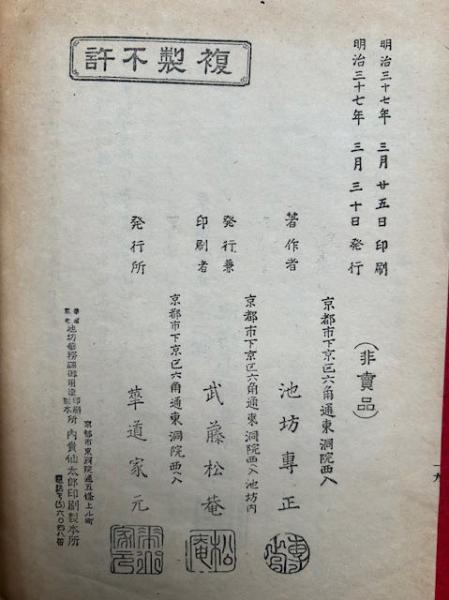 明治三十七年 三月 廿五日 印刷
明治三十七年 三月 三十日 発行
(非賣品)
京都市下京区六角通東洞院西入
著作者 池坊專正
京都市下京区六角通東洞院西入池坊内
発行兼
印刷者 武藤松庵
京都市下京区六角通東洞院西入
発行所 華道家元
複製不許
京都市東洞院通五條上ル町
池坊華務課御用達印刷製本所 内貴仙太郎印刷製本所
電話下(5)六〇四八番